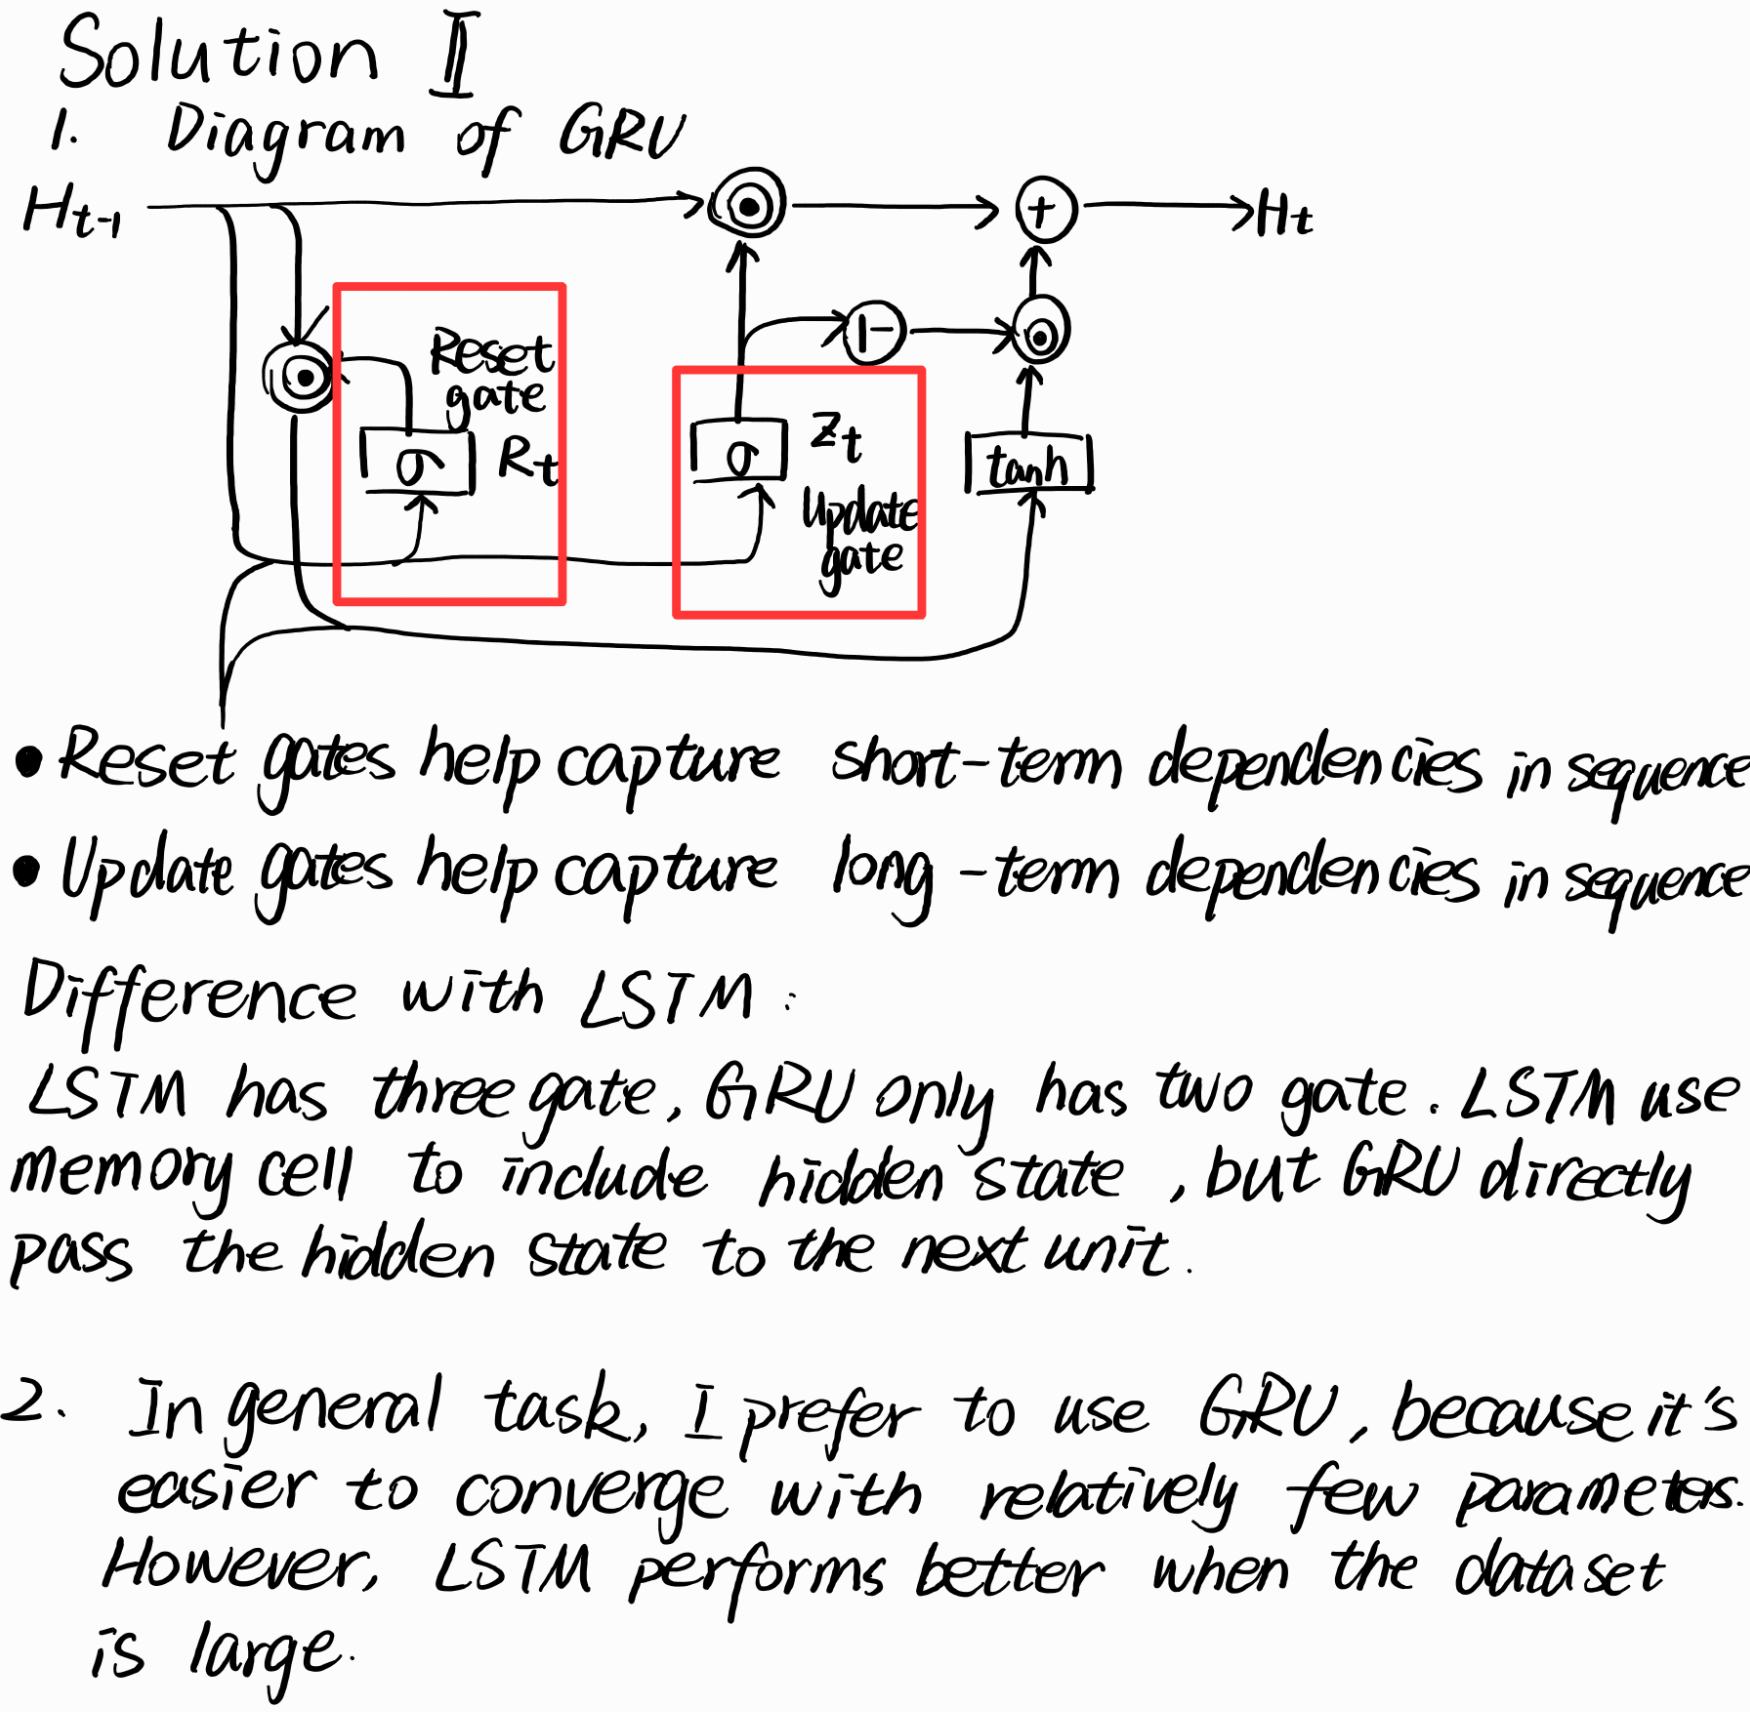 Solution II
1. Diagram of GRU
H_{t-1}
⊙
+
H_t
1-
⊙
⊙
Reset
gate
σ
R_t
σ
Z_t
Update
gate
tanh
• Reset gates help capture short-term dependencies in sequence
• Update gates help capture long-term dependencies in sequence
Difference with LSTM:
LSTM has three gate, GRU only has two gate. LSTM use
memory cell to include hidden state, but GRU directly
pass the hidden state to the next unit.
2. In general task, I prefer to use GRU, because it's
easier to converge with relatively few parameters.
However, LSTM performs better when the dataset
is large.